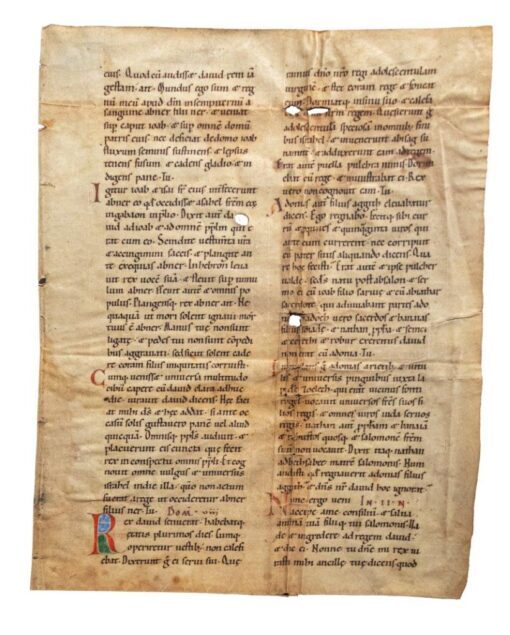 eius. Quod cū audisset dauid rem iā
gestam. ait. Mundus ego sum & reg
nū meū apud dn̄m in sempiternū a
sanguine abner filii ner. & ueniat
sup caput ioab & sup omnē domū
patris eius nec deficiat de domo ioab
fluxum seminis sustinens & leprosus
tenens fusum & cadens gladio & in
digens pane. Tu.
Igitur ioab & abisai fr̄ eius interfecerunt
abner eo qd̄ occidisset asahel frēm eoꝝ
in gabaon in prelio. Dixit aut̄ da
uid ad ioab & ad omnē ppl̄m qui e
rat cum eo. Scindite uestimta ur̄a
& accingimini saccis & plangite an
te exequias abner. In hebron leua
uit rex uocē suā & fleuit sup tumu
lum abner. Fleuit aut̄ & omnis po
pulus. Plangensq; rex abner ait. Ne
quaquā ut mori solent ignaui mor
tuus ē abner. Manus tuę non sunt
ligatę. & pedes tui non sunt cōpedi
bus aggrauati. sed sicut solent cade
re coram filiis iniquitatis corruisti.
Cumq; uenisset uniuersa multitudo
cibū capere cū dauid clara adhuc
die. iurauit dauid dicens. Hęc faci
at mihi ds̄ & hęc addat. si ante oc
casū solis gustauero panē uel aliud
quicquā. Omnisq; ppls̄ audiuit. &
placuerunt eis cuncta quę fecit
rex in conspectu omnis ppl̄i. & cog
nouit omne uulgus & uniuersus
isrl̄ in die illa quō non actum
fuerat a rege ut occideretur abner
filius ner. Tu. Dom. viii
Rex dauid senuerat. habebatq;
ętatis plurimos dies. Cumq;
operiretur uestib; non calefi
ebat. Dixerunt g̊ ei serui sui. Quę
ramus dn̄o nr̄o regi adolescentulam
uirginē. & stet coram rege & foueat
eum. dormiatq; in sinu suo & calefa
regem. Quęsierunt g̊
adolescentulā speciosā in omnib; fini
bus isrl̄ & inuenerunt abisag su
namitē & adduxerunt eam ad regem.
Erat aut̄ puella pulchra nimis. Dormi
ebat cū rege & ministrabat ei. Rex
uero non cognouit eam. Tu.
Adonias aut̄ filius aggith eleuabatur
dicens. Ego regnabo. fecitq; sibi cur
rū & equites & quinquaginta uiros qui
ante eum currerent. nec corripuit
eū pater suus aliquando dicens. Qua
re hoc fecisti. Erat aut̄ & ipse pulcher
ualde. secds̄ natu post absalon. & ser
mo ei cū ioab filio saruię & cū abiathar
sacerdote. qui adiuuabant partes ado
sadoch uero sacerdos & banaias
filius ioiadę. & nathan ppha & semei
& cerethi & robur exercitus dauid
non erat cū adonia. Tu.
g̊ adonias arietib; & uitu
lis & uniuersis pinguibus iuxta la
pidē zoeleth qui erat uicinus fonti
rogel. uocauit uniuersos frēs suos fi
lios regis & omnes uiros iuda seruos
regis. nathan aut̄ ppham & banaiā
& robustos quosq; & salomonē frēm
suū non uocauit. Dixit itaq; nathan
ad bethsabee matrē salomonis. Num
audisti qd̄ regnauerit adonias filius
aggith & dn̄s nr̄ dauid hoc ignorat.
Nunc ergo ueni In. II. N.
accipe a me consiliū. & salua
animā tuā filiiq; tui salomonis. Ua
de & ingredere ad regem dauid.
& dic ei. Nonne tu dn̄e mi rex iu
rasti mihi ancillę tuę dicens quod